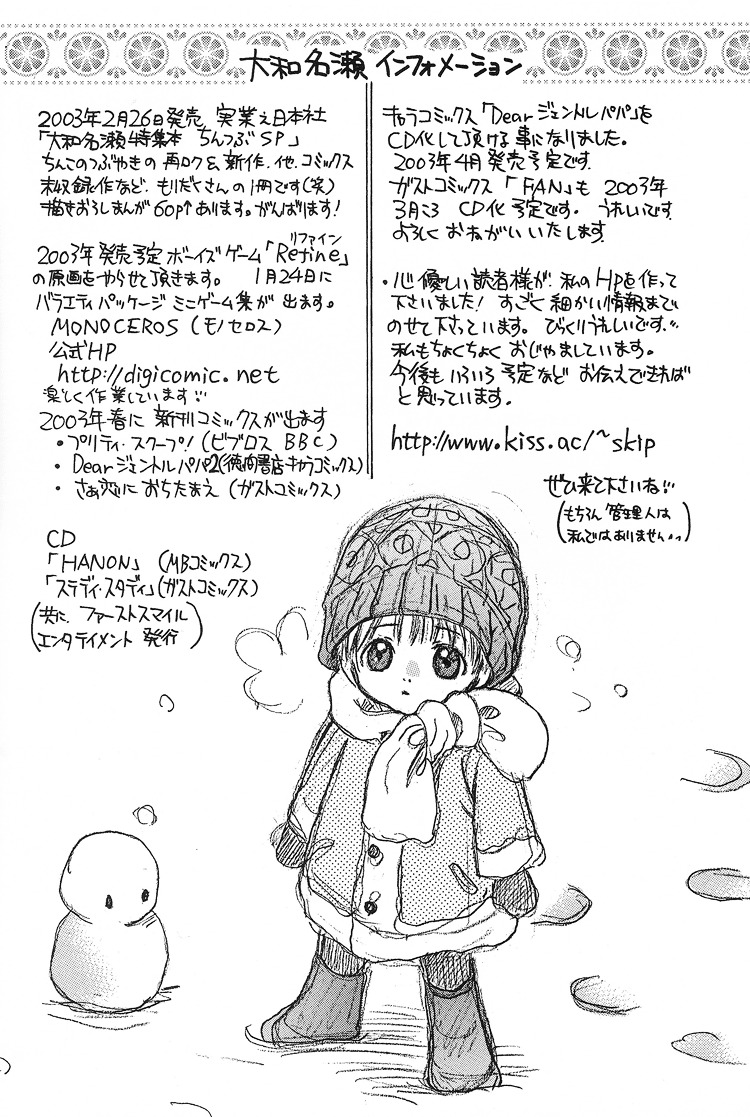 大和名瀬 インフォメーション
2003年2月26日発売 実業之日本社
「大和名瀬特集本 ちんつぶSP」
ちんこのつぶやきの再ロク&新作.他.コミックス
未収録作など.もりだくさんの1冊です(笑)
描きおろしまんが60p↑あります。がんばります!
2003年発売予定 ボーイズゲーム「Refine」
リファイン
の原画をやらせて頂きます。 1月24日に
バラエティパッケージ ミニゲーム集が 出ます。
MONOCEROS (モノセロス)
公式HP
http://digicomic.net
楽しく作業しています
2003年春に 新刊コミックスが出ます
・プリティ・スクープ! (ビブロス BBC)
・Dearジェントルパパ2(徳間書店キャラコミックス)
・さぁ恋におちたまえ (ガストコミックス)
CD
「HANON」 (MBコミックス)
「ステディ・スタディ」(ガストコミックス)
(共に ファーストスマイル
エンタテイメント 発行)
キャラコミックス「Dearジェントルパパ」を
CD化して頂ける事になりました。
2003年4月発売予定です.
ガストコミックス 「FAN」も 2003年
3月ころ CD化予定です。うれしいです.
よろしく おねがい いたします
・心優しい読者様が.私のHPを作って
下さいました! すごく細かい情報まで
のせて下さっています。びっくりうれしいです
私もちょくちょく おじゃましています。
今後もいろいろ予定など お伝えできれば
と思っています.
http://www.kiss.ac/~skip
ぜひ来て下さいね
(もちろん管理人は
私ではありません..)